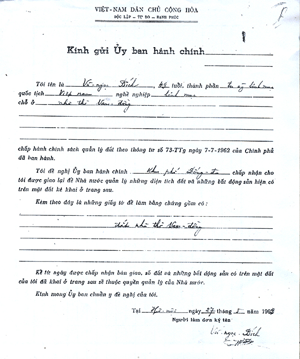 VIỆT-NAM DÂN CHỦ CỘNG HÒA
ĐỘC LẬP - TỰ DO - HẠNH PHÚC
Kính gửi Ủy ban hành chính
Tôi tên là Vũ-ngọc Bích, tuổi, thành phần
quốc tịch Việt nam nghề nghiệp linh mục
chỗ ở nhà thờ Nam-đồng
chấp hành chính sách quản lý đất theo thông tư số 73-TTg ngày 7-7-1962 của Chính phủ
đã ban hành.
Tôi đề nghị Ủy ban hành chính Khu phố Đống-đa chấp nhận cho
tôi được giao lại để Nhà nước quản lý những diện tích đất và những bất động sản hiện có
trên mặt đất kê khai ở trang sau.
Kèm theo đây là những giấy tờ để làm bằng chứng gồm có:
nhà thờ Nam-đồng
Kể từ ngày được chấp nhận bàn giao, số đất và những bất động sản có trên mặt đất
của tôi đã khai ở trang sau sẽ thuộc quyền quản lý của Nhà nước.
Kính mong Ủy ban chuẩn y đề nghị của tôi.
Tại Hà-nội ngày 196
Người làm đơn ký tên
Vũ-ngọc-Bích